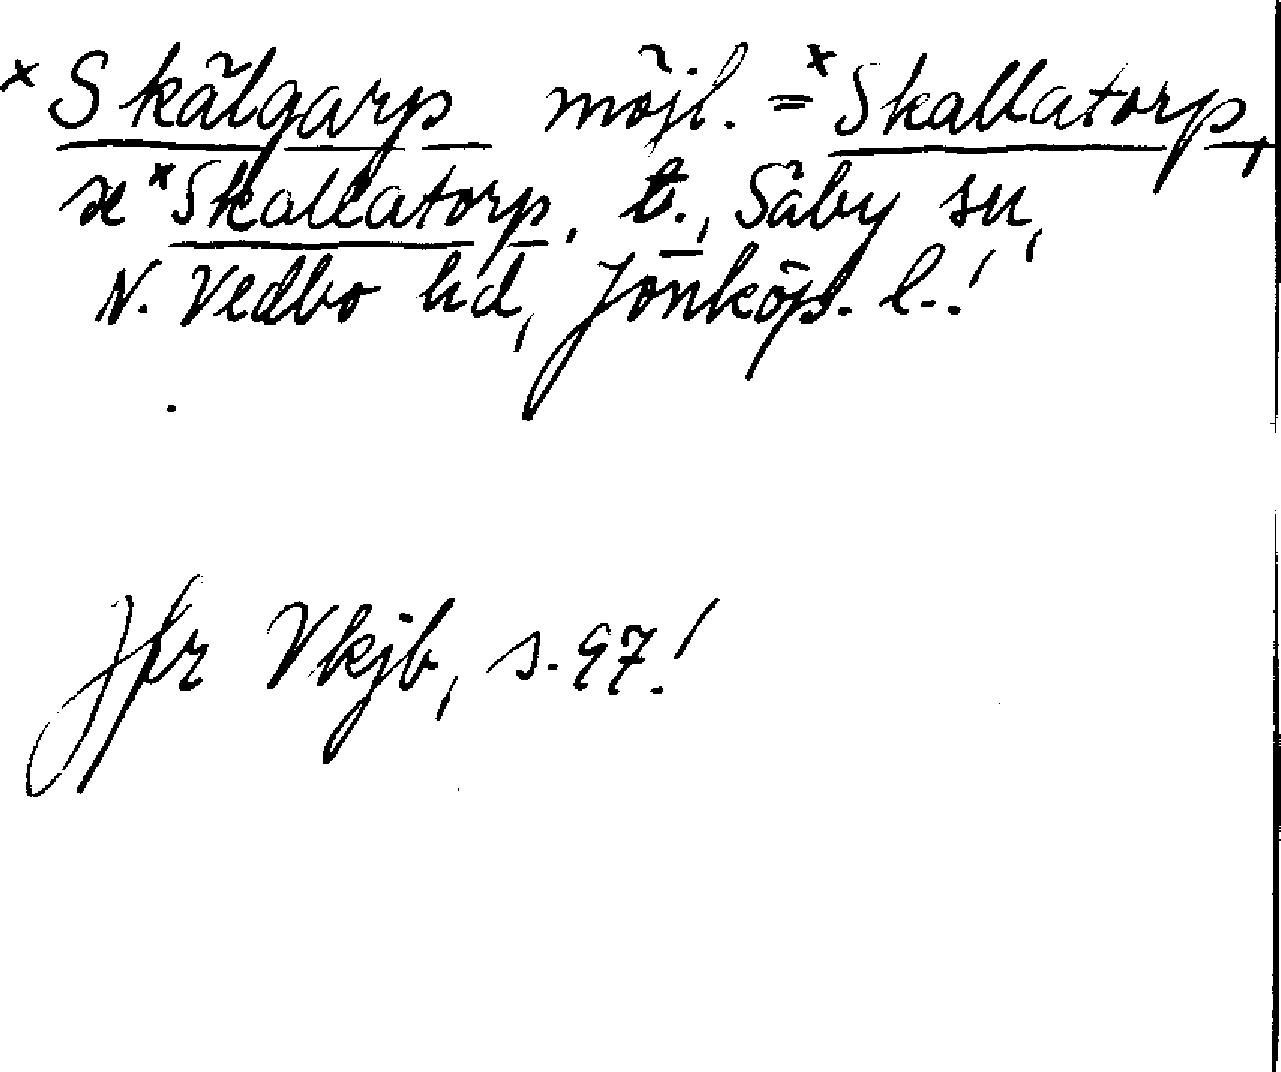 × Skälgarp möjl. = × Skallatorp,
se × Skallatorp, t., Säby sn,
N. Vedbo hd, Jönköp. l.!
Jfr Vkjb, s. 97!